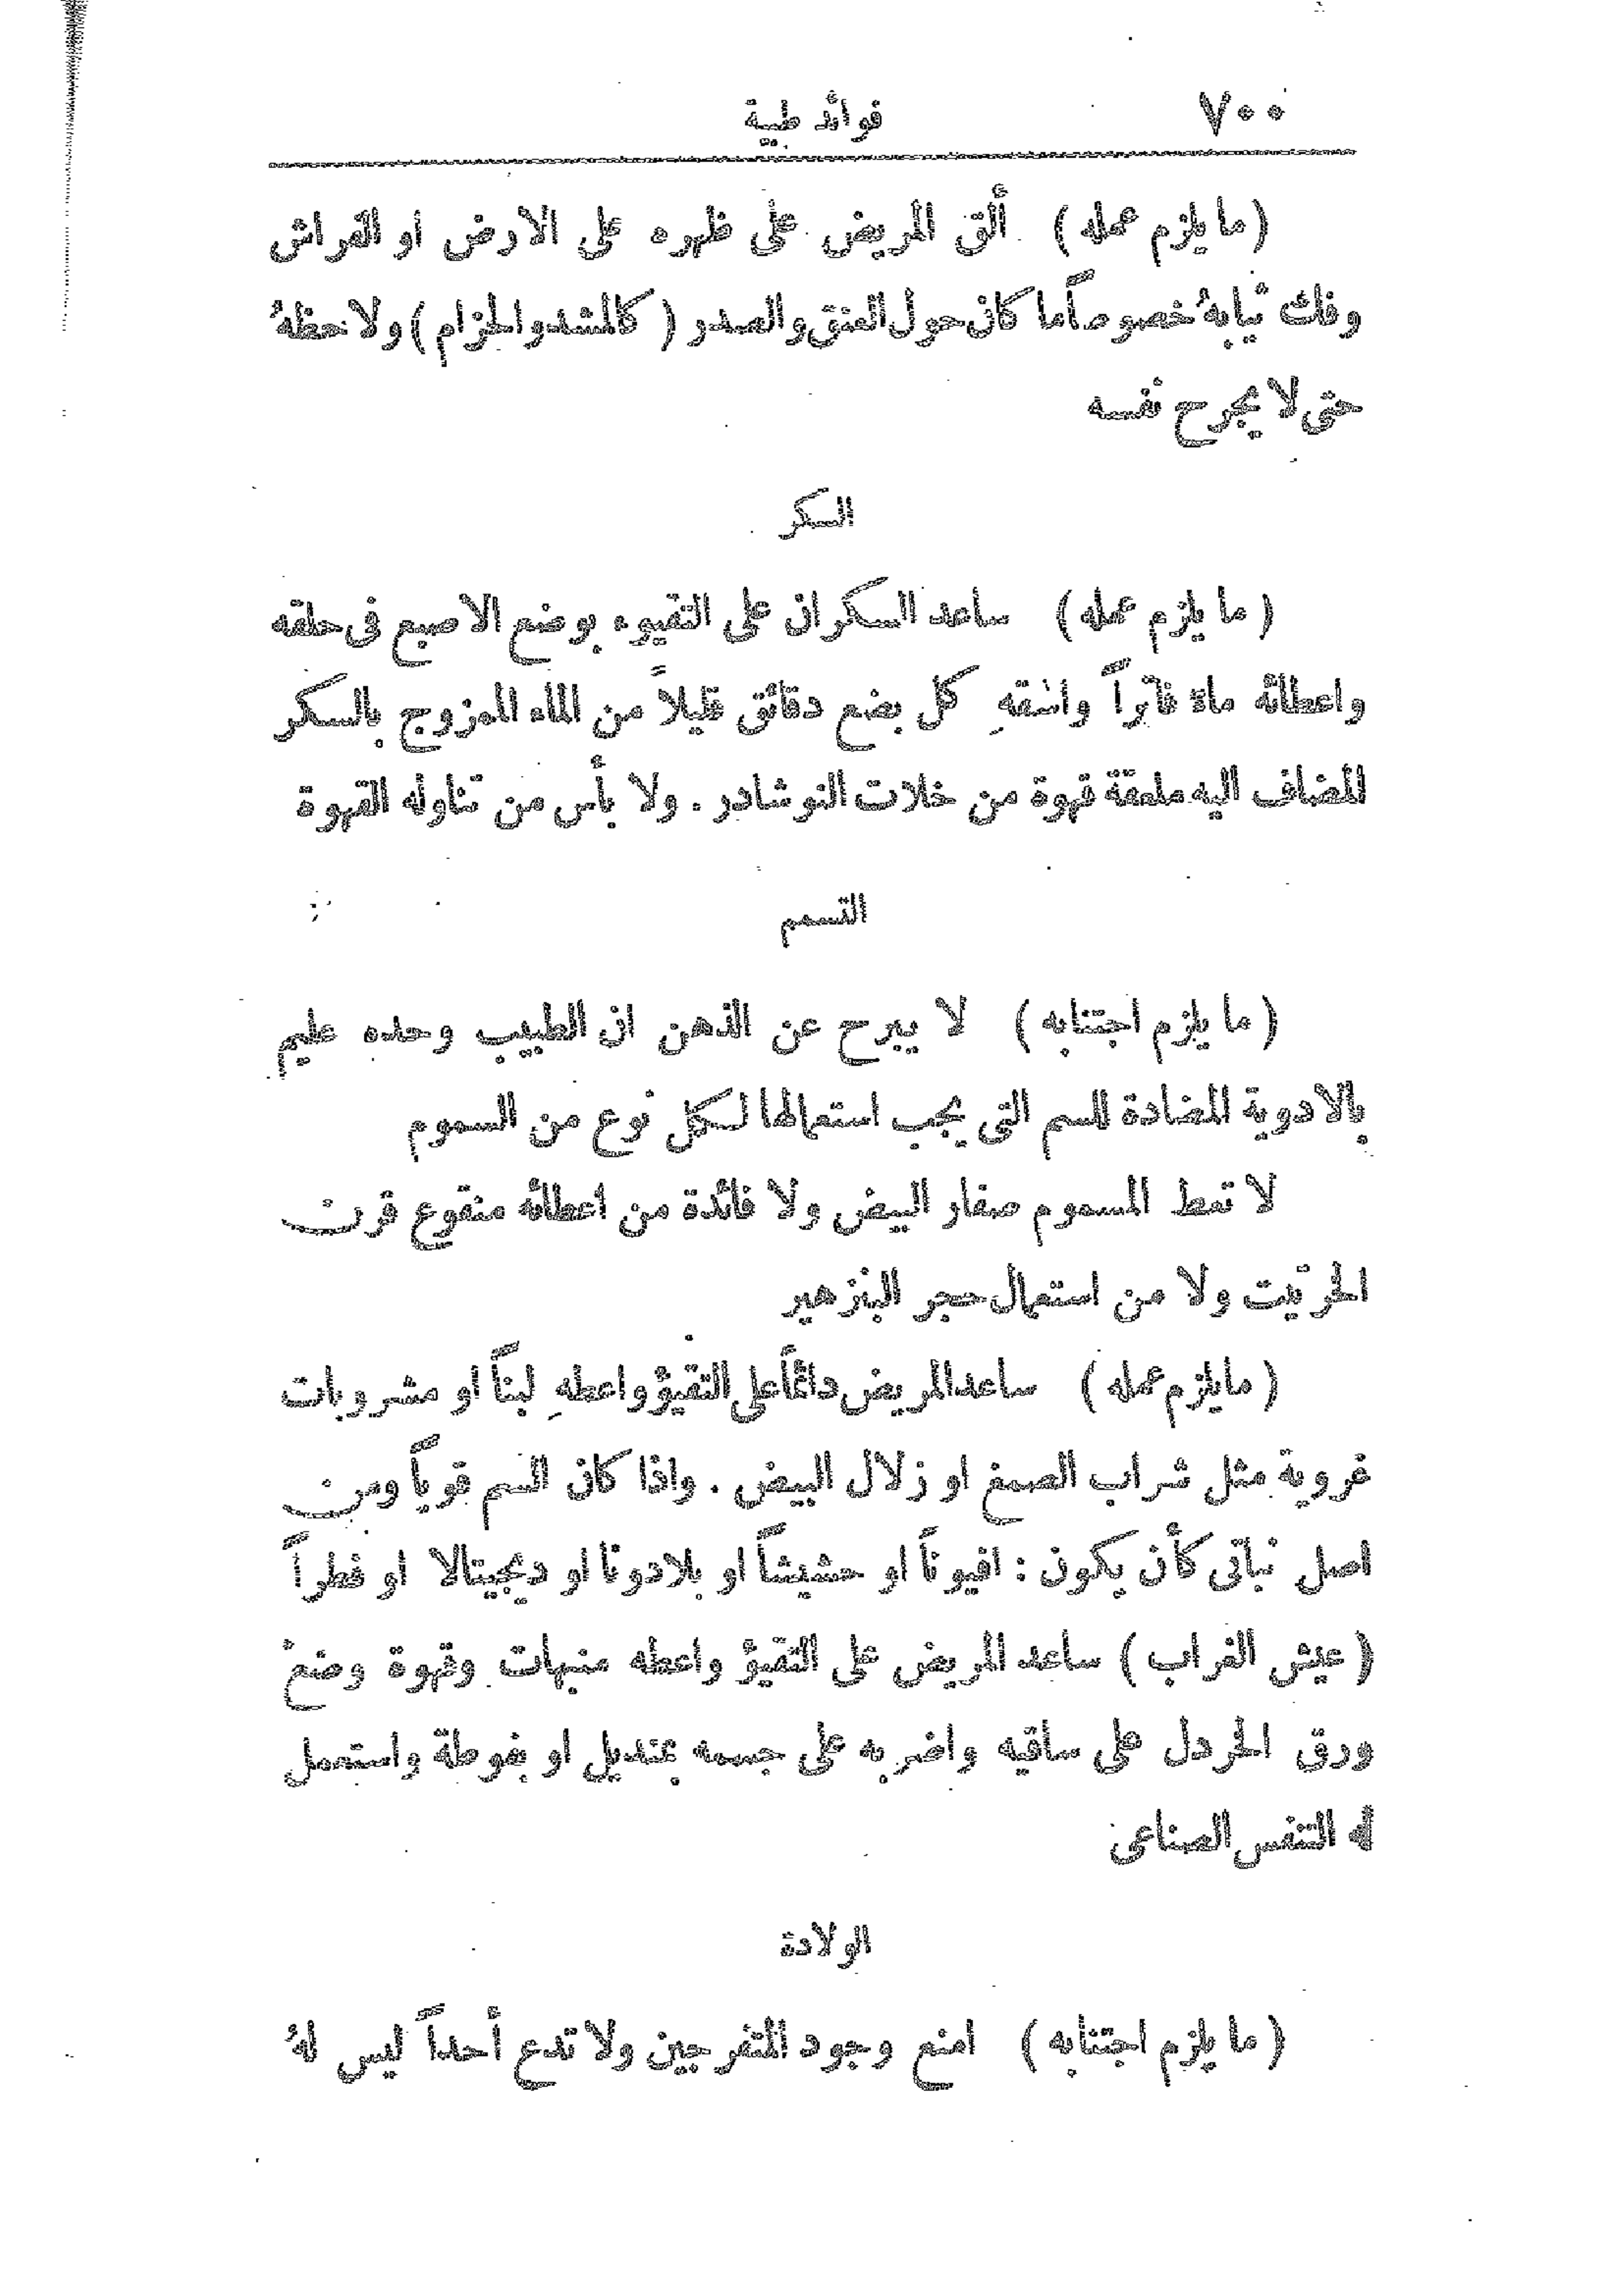 ٧٠٠ فوائد طبية
(ما يلزم عمله) ألق المريض على ظهره على الارض او الفراش
وفك ثيابهُ خصوصاً ما كان حول العنق والصدر (كالمشد والحزام) ولاحظهُ
حتى لا يجرح نفسه
السكر
(ما يلزم عمله) ساعد السكران على التقيوء بوضع الاصبع فى حلقه
واعطائه ماءً فاتراً واسقهِ كل بضع دقائق قليلاً من الماء الممزوج بالسكر
المضاف اليه ملعقة قهوة من خلات النوشادر . ولا بأس من تناوله القهوة
التسمم
(ما يلزم اجتنابه) لا يبرح عن الذهن ان الطبيب وحده عليم
بالادوية المضادة للسم التى يجب استعمالها لكل نوع من السموم
لا تعط المسموم صفار البيض ولا فائدة من اعطائه منقوع قرن
الخرتيت ولا من استعمال حجر البنزهير
(ما يلزم عمله) ساعد المريض دائماً على التقيؤ واعطهِ لبناً او مشروبات
غروية مثل شراب الصمغ او زلال البيض . واذا كان السم قوياً ومن
اصل نباتى كأن يكون : افيوناً او حشيشاً او بلادونا او ديجيتالا او فطراً
(عيش الغراب) ساعد المريض على التقيؤ واعطه منبهات وقهوة وضعْ
ورق الخردل على ساقيه واضربه على جسمه بمنديل او بفوطة واستعمل
له التنفس الصناعى
الولادة
(ما يلزم اجتنابه) امنع وجود المتفرجين ولا تدع أحداً ليس لهُ